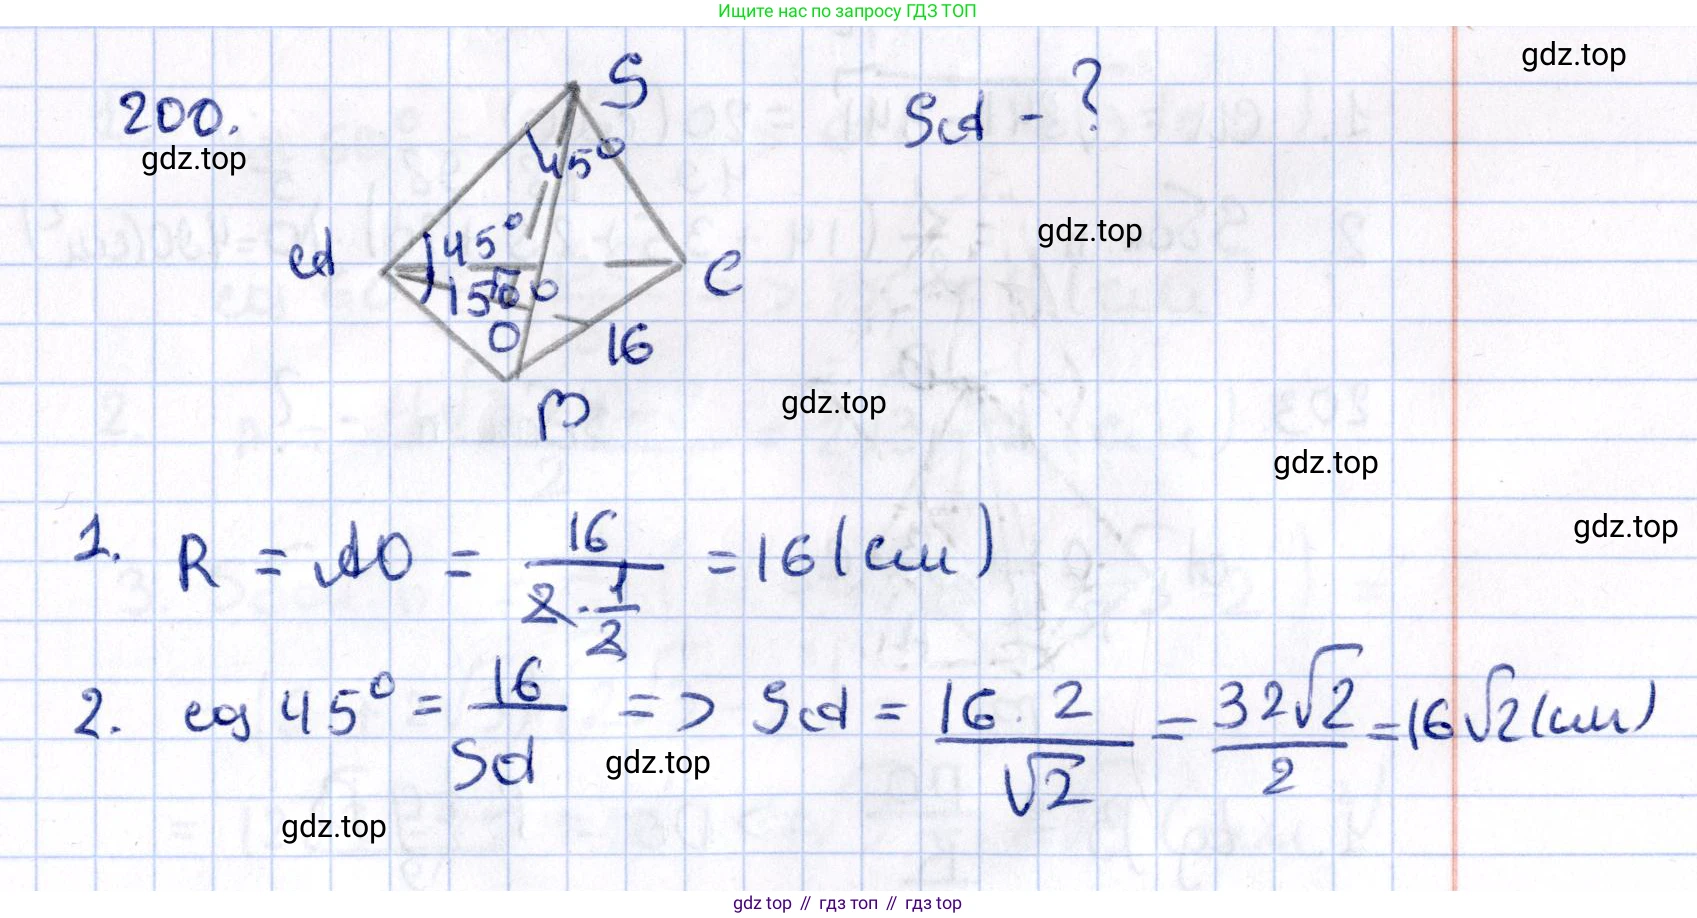 Ищите нас по запросу ГДЗ ТОП
gdz.top
200.
gdz.top
S
SA - ?
45°
gdz.top
A
45°
150°
C
O
16
B
gdz.top
gdz.top
gdz.top
1. R = AO = 16 / (2 · 1/2) = 16 (см)
2. cos 45° = 16 / SA => SA = 16 · 2 / √2 = 32√2 / 2 = 16√2 (см)
gdz.top
gdz.top
gdz.top // гдз топ // гдз top